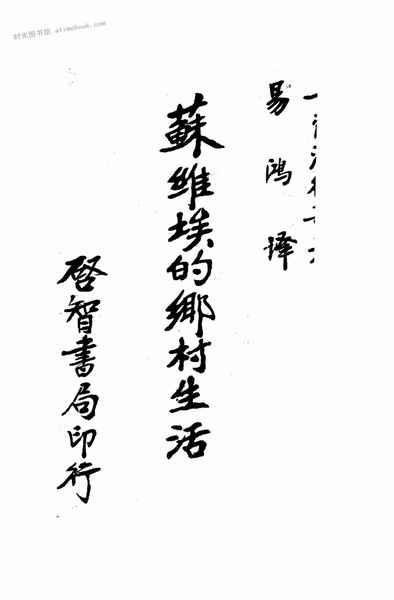 时光图书馆 atimebook.com
易鴻譯
蘇維埃的鄉村生活
啓智書局印行